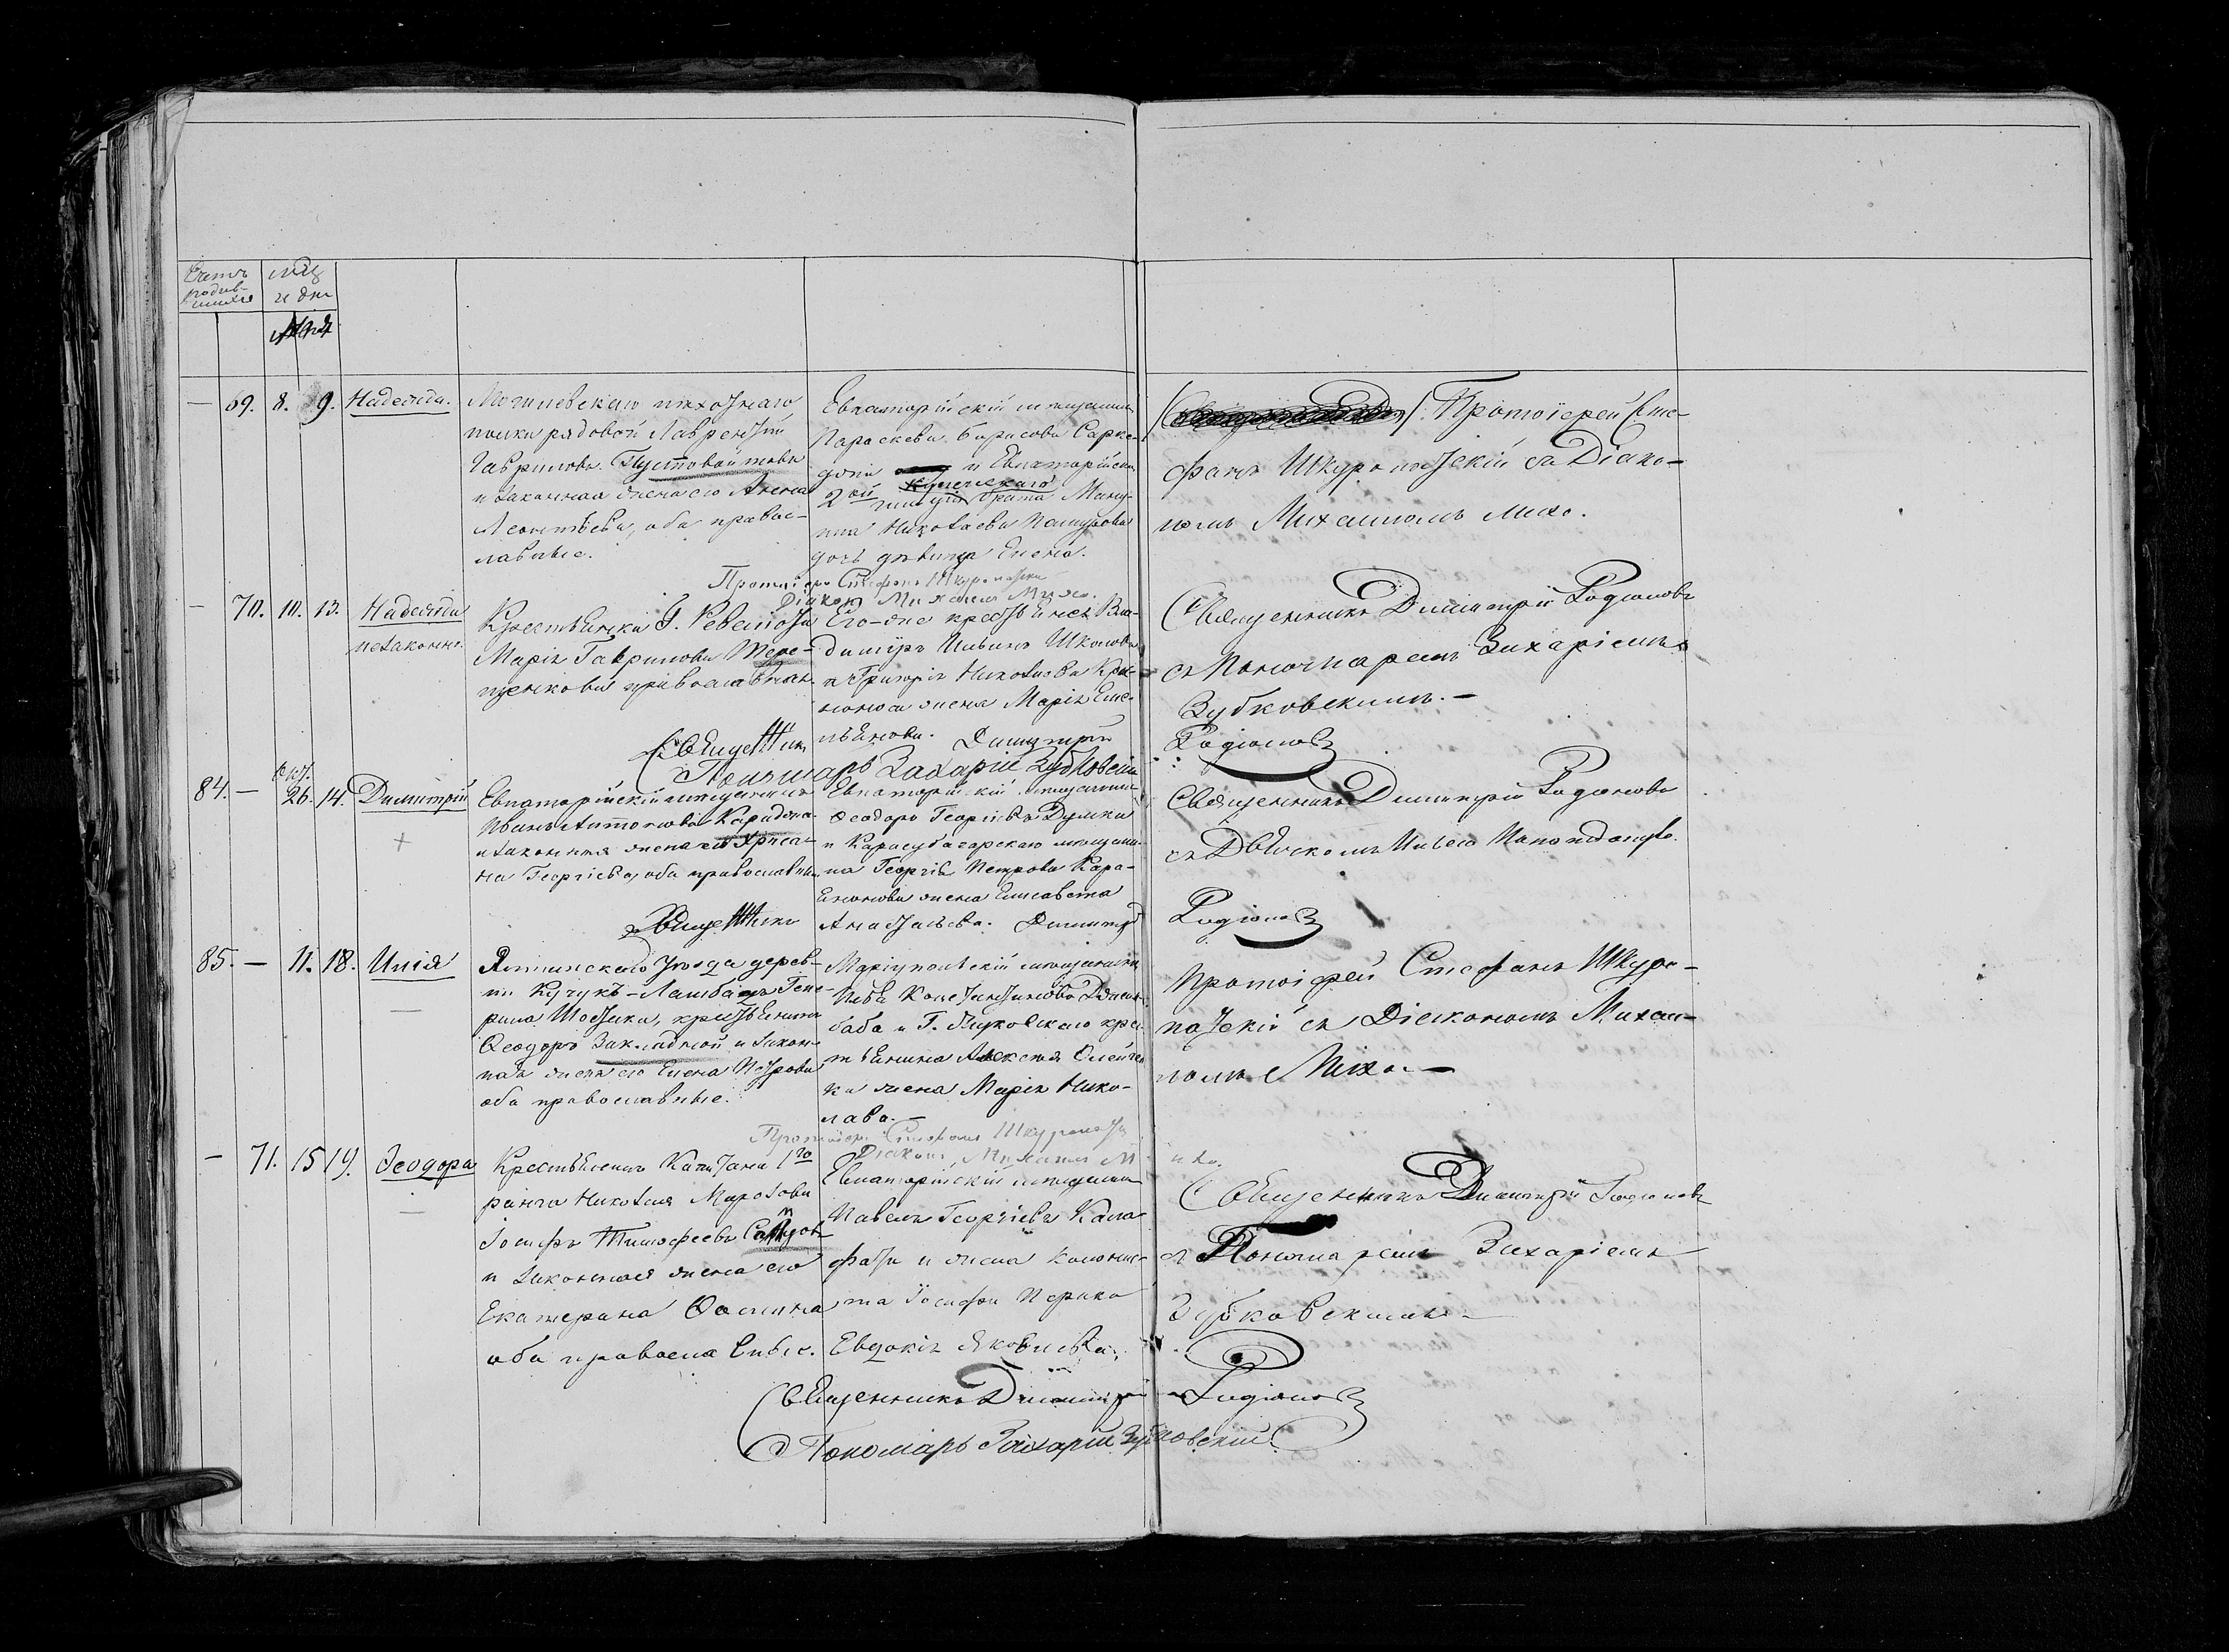 Счетъ родив-
шихся
мцъ
и дни
Мая
— 69. 8. 9. Надежда.
Могилевскаго пехотнаго
полка рядовой Лаврентій
Гавриловъ Пустовойтовъ
и законная жена его
Леонтьева, оба правос-
лавные.
Евпаторійскій мещанинъ
Параскева Борисова
и Евпаторійскаго
2ой купеческаго
гильдіи брата
Николаева
дочь девица Елена.
Протоіерей Сте-
фанъ Шкуропатскій съ Діако-
номъ Михаиломъ Михо.
Протоіерей Стефанъ Шкуропатскій
Діаконъ Михаилъ Михо.
— 70. 10. 13. Надежда
незаконн.
Крестьянка
Марія Гаврилова Тере-
щенкова православная.
крестьянск Вла-
димиръ Ивановъ Школовъ
и Григорія Николаева
жена Марія Еме-
льянова.
Священникъ Димитрій Родіоновъ
съ Пономаремъ Захаріемъ
Зубковскимъ. —
Священникъ Димитрій Родіоновъ
Пономарь Захарій Зубковскій
84. — Окт. 26. 14. Димитрій
Евпаторійскій мещанинъ
Иванъ Антоновъ
и законная жена его Хриса-
на Георгіева, оба православные
Евпаторійскій мещанинъ
Феодоръ Георгіевъ
и Карасубазарскаго мещани-
на Георгія Петрова Кара-
жена Елисавета
Анастасьева.
Священникъ Димитрій Родіоновъ
съ
Священникъ Димитрій Родіоновъ
85. — 11. 18. Илія
Ялтинскаго Уезда дерев-
ни Кучукъ-Ламбадъ Гене-
рала Шостака, крестьянинъ
Феодоръ Закладной и закон-
ная жена его Елена Петрова
оба православные.
Маріупольскій мещанинъ
Константиновъ
баба и Г. крес-
тьянина Алексея Олейни-
ка жена Марія Нико-
лаева. —
Протоіерей Стефанъ Шкуро-
патскій съ Діакономъ Михаи-
ломъ Михо. —
Протоіерей Стефанъ Шкуропатскій
Діаконъ Михаилъ Михо.
— 71. 15 19. Феодора
Крестьянинъ Капитана 1го
ранга Николая Морозова
Іосифъ Тимофеевъ
и законная жена его
Екатерина Фомина
оба православные.
Евпаторійскій мещанинъ
Павелъ Георгіевъ Кала-
фати и жена колонис-
та Іосифа
Евдокія Яковлева.
Священникъ Димитрій Родіоновъ
съ Пономаремъ Захаріемъ
Зубковскимъ
Священникъ Димитрій Родіоновъ
Пономарь Захарій Зубковскій